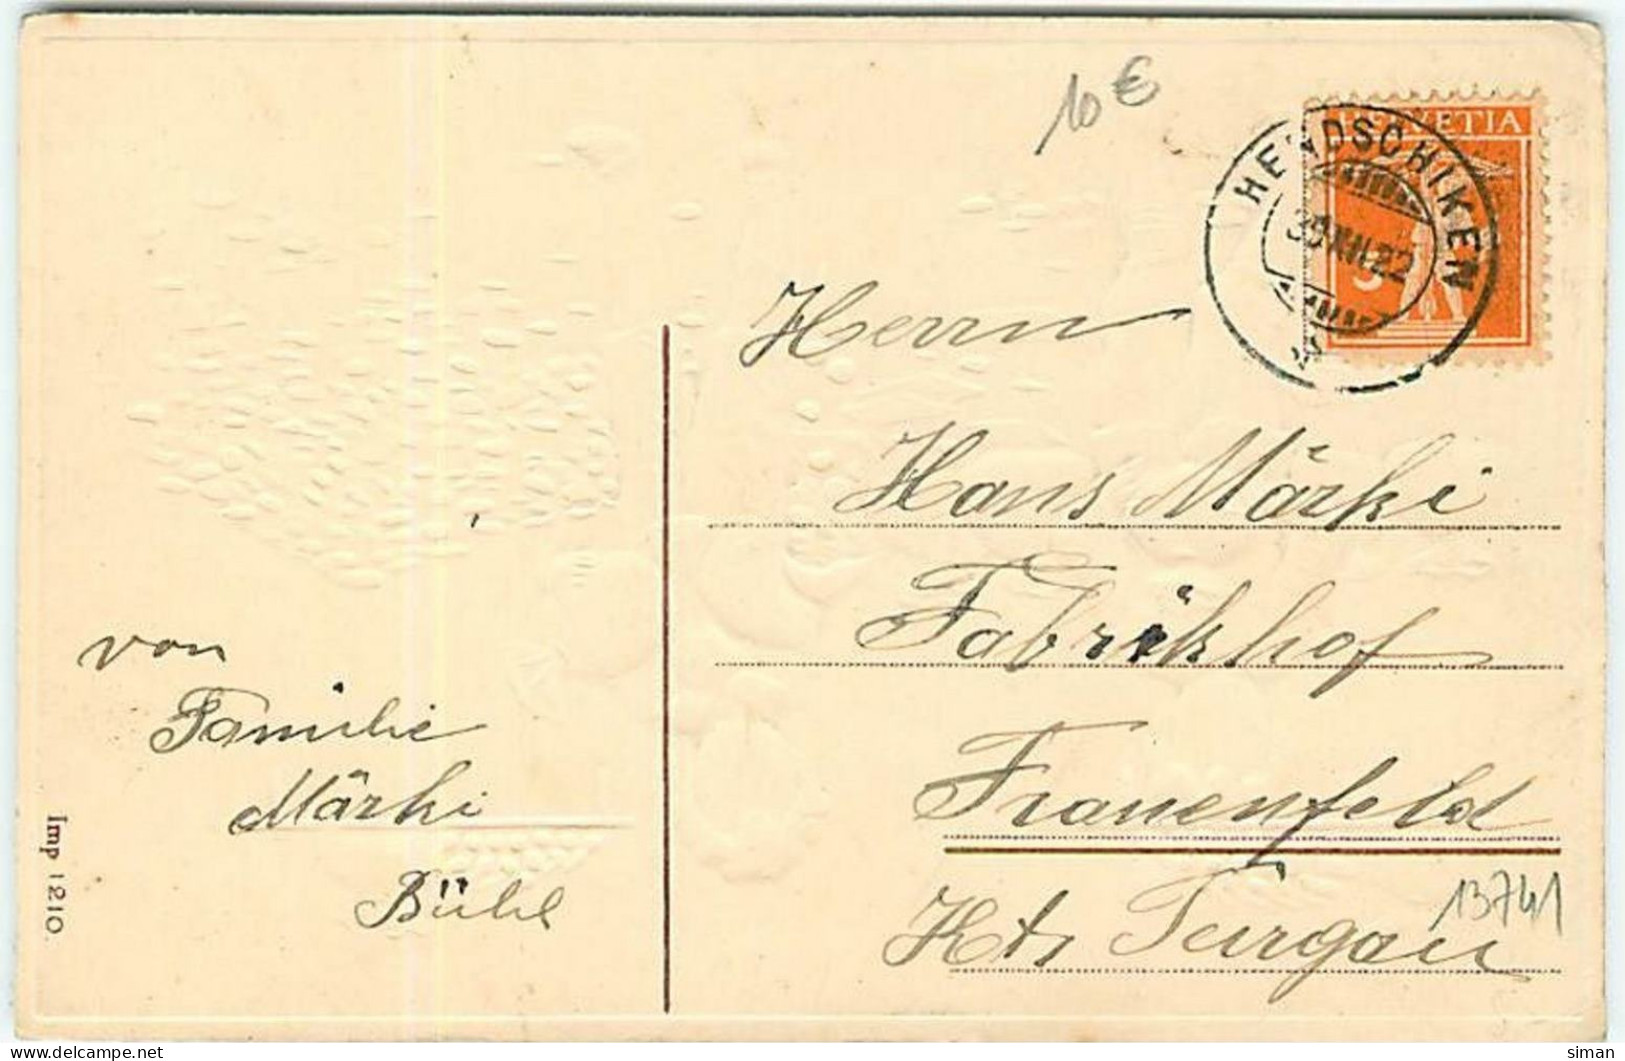 10 €
HELVETIA
HENDSCHIKEN
30.XII.22
5
Herrn
Hans Märki
Fabrikhof
Frauenfeld
Kts Turgau
13741
von
Familie
Märki
Bühl
Imp 1210.
delcampe.net
siman